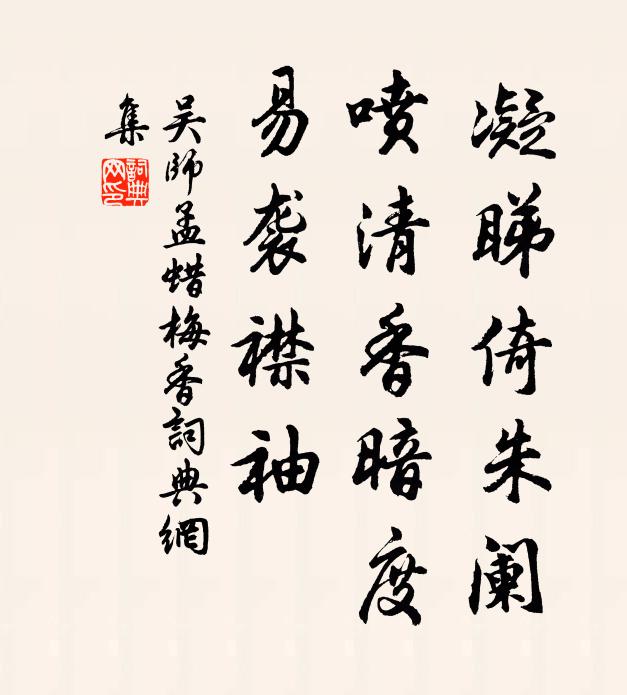 凝睇倚朱阑
喷清香暗度
易袭襟袖
吴师孟蜡梅香詞典網
集
詞典網印